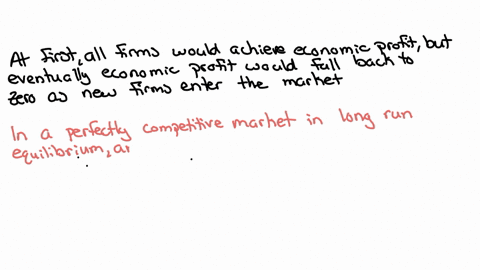 At first, all firms would achieve economic profit, but
eventually economic profit would fall back to
zero as new firms enter the market
In a perfectly competitive market in long run
equilibrium, ar